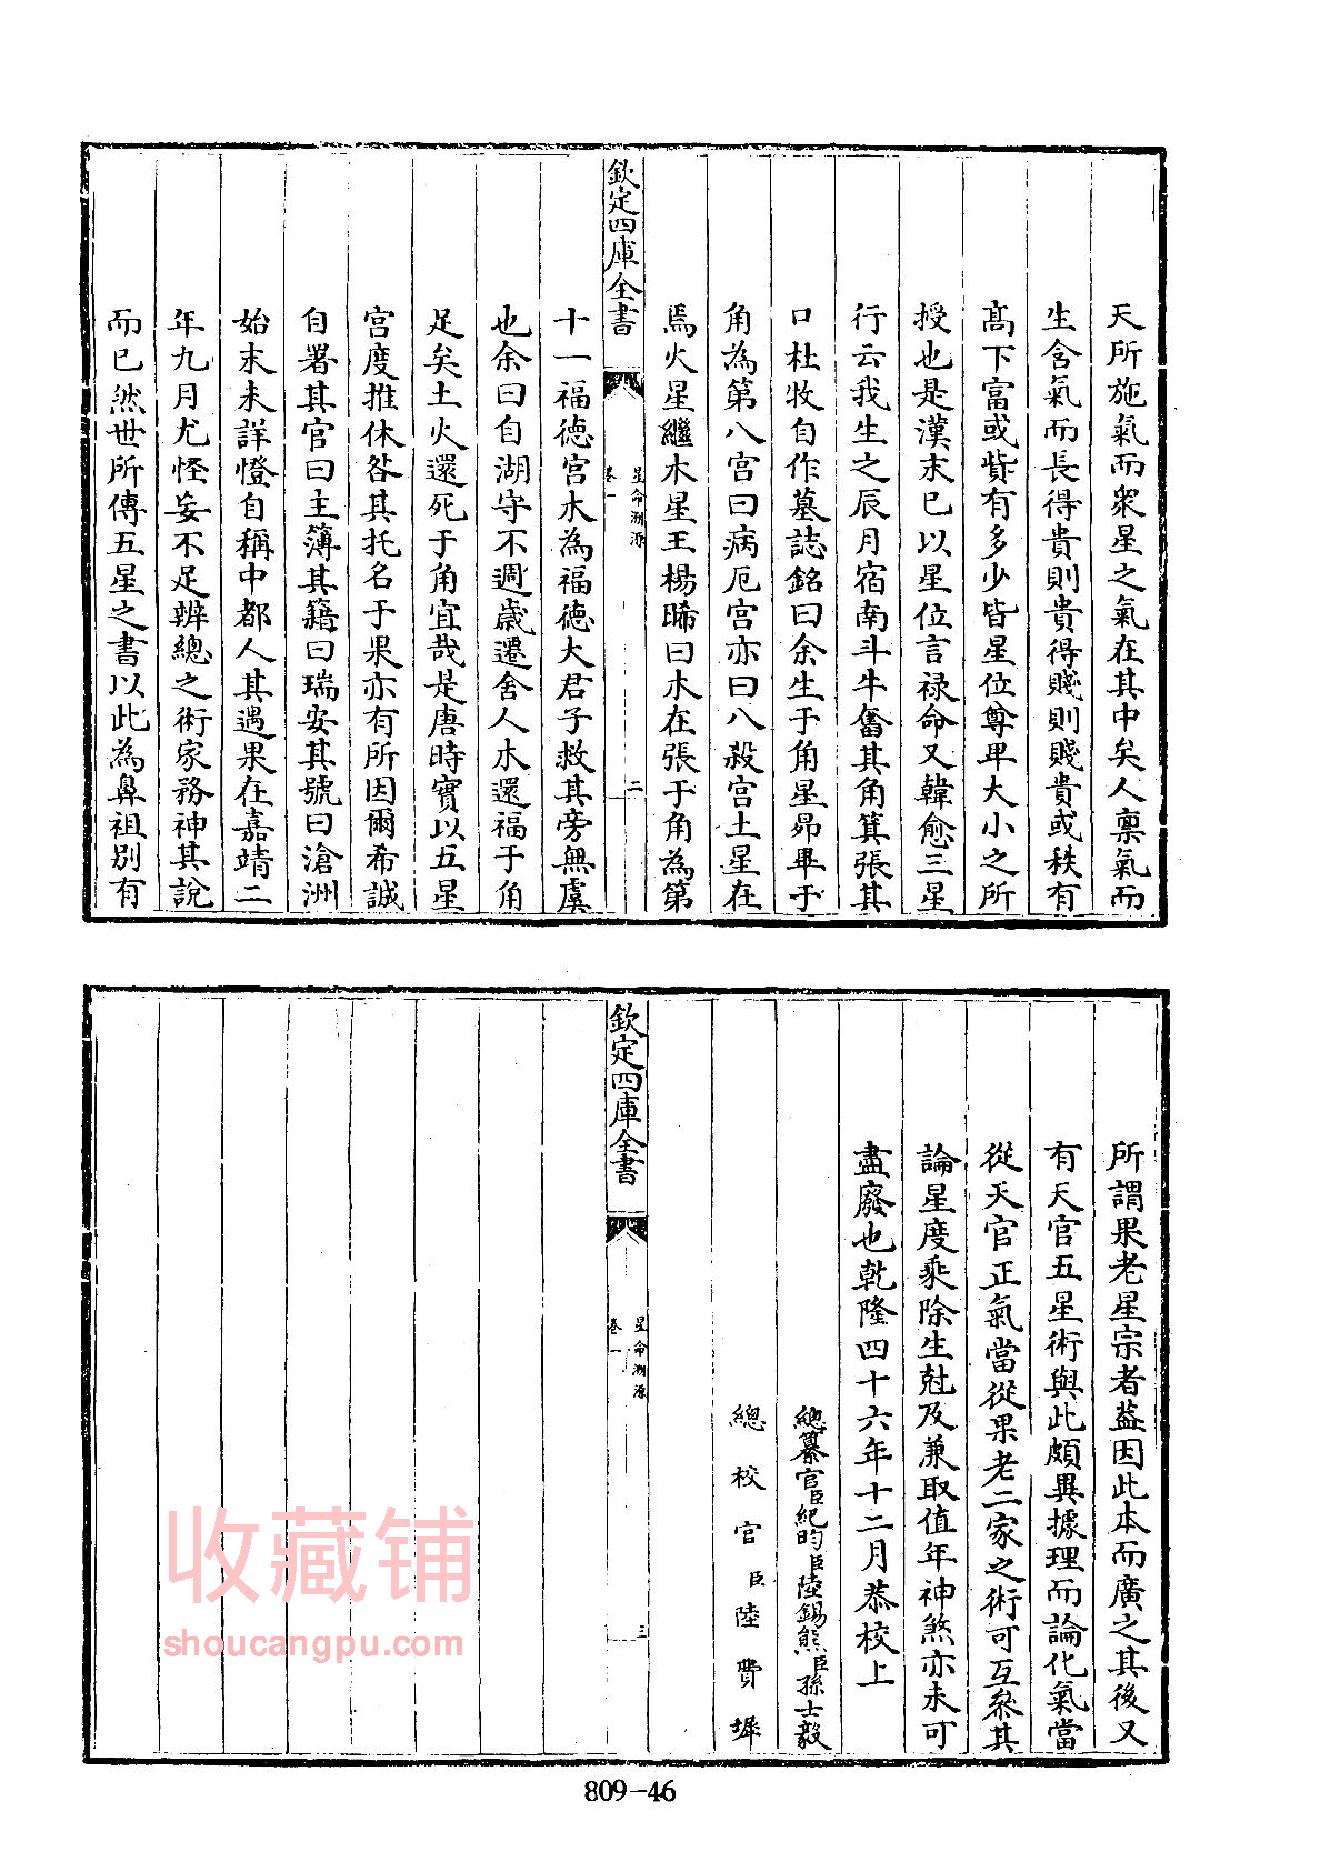 天所施氣而衆星之氣在其中矣人稟氣而
生含氣而長得貴則貴得賤則賤貴或秩有
髙下富或貲有多少皆星位尊卑大小之所
授也是漢末已以星位言禄命又韓愈三星
行云我生之辰月宿南斗牛奮其角箕張其
口杜牧自作墓誌銘曰余生于角星昴畢于
角為第八宫曰病厄宫亦曰八殺宫土星在
焉火星繼木星王楊晞曰木在張于角為第
欽定四庫全書
星命溯源
卷一
二
十一福德宫木為福德大君子救其旁無虞
也余曰自湖守不週歲遷舍人木還福于角
足矣土火還死于角宜哉是唐時實以五星
宫度推休咎其托名于果亦有所因爾希誠
自署其官曰主簿其籍曰瑞安其號曰滄洲
始末未詳憕自稱中都人其遇果在嘉靖二
年九月尤怪妄不足辨總之術家務神其說
而已然世所傳五星之書以此為鼻祖别有
所謂果老星宗者葢因此本而廣之其後又
有天官五星術與此頗異據理而論化氣當
從天官正氣當從果老二家之術可互叅其
論星度乘除生尅及兼取值年神煞亦未可
盡廢也乾隆四十六年十二月恭校上
總纂官臣紀昀臣陸錫熊臣孫士毅
總校官臣陸費墀
欽定四庫全書
星命溯源
卷一
三
收藏铺
shoucangpu.com
809-46